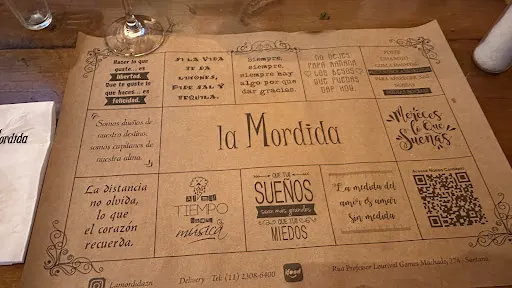 Hacer lo que
guste... es
libertad.
Que te guste lo
que haces... es
felicidad.
SI LA VIDA
TE DA
LIMONES,
PIDE SAL Y
TEQUILA.
Siempre,
siempre,
siempre hay
algo por que
dar gracias.
NO DEJES
PARA MAÑANA
LOS BESOS
QUE PUEDAS
DAR HOY.
Somos dueños de
nuestro destino,
somos capitanes de
nuestra alma.
la Mordida
Mereces
lo Que
Sueñas
La distancia
no olvida,
lo que
el corazón
recuerda.
TIEMPO
música
QUE TUS
SUEÑOS
sean más grandes
QUE TUS
MIEDOS
La medida del
amor es amar
sin medida
Acesse Nosso Cardápio
Lamordidazn
Delivery - Tel: (11) 2308-6400
ifood
Rua Professor Lourival Gomes Machado, 274 - Santana
Mordida